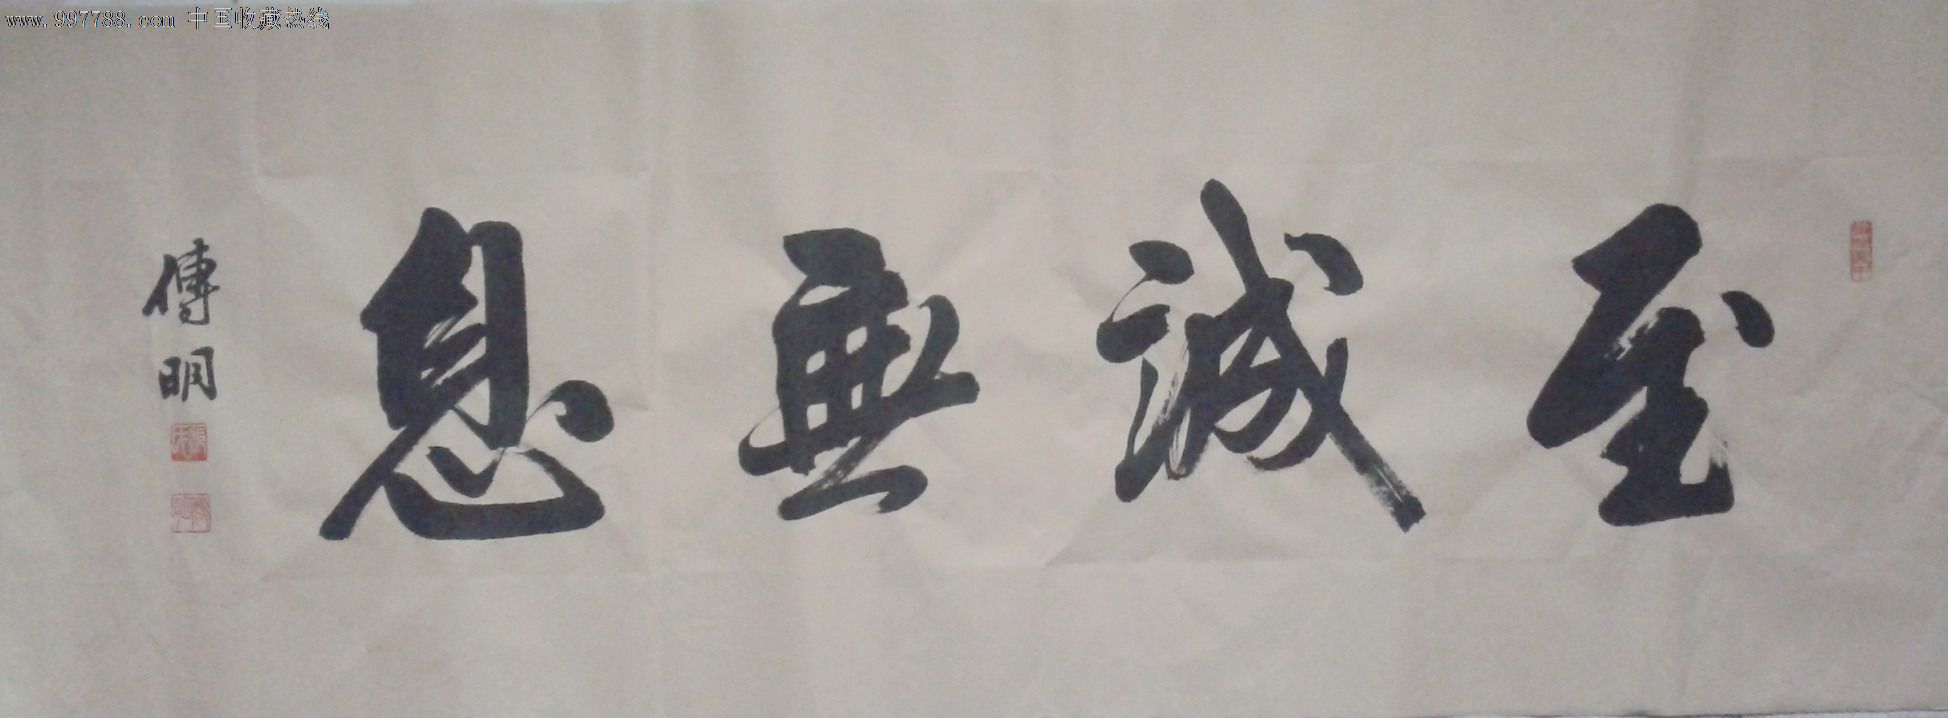 www.997788.com 中国收藏热线
至誠無息
傅明